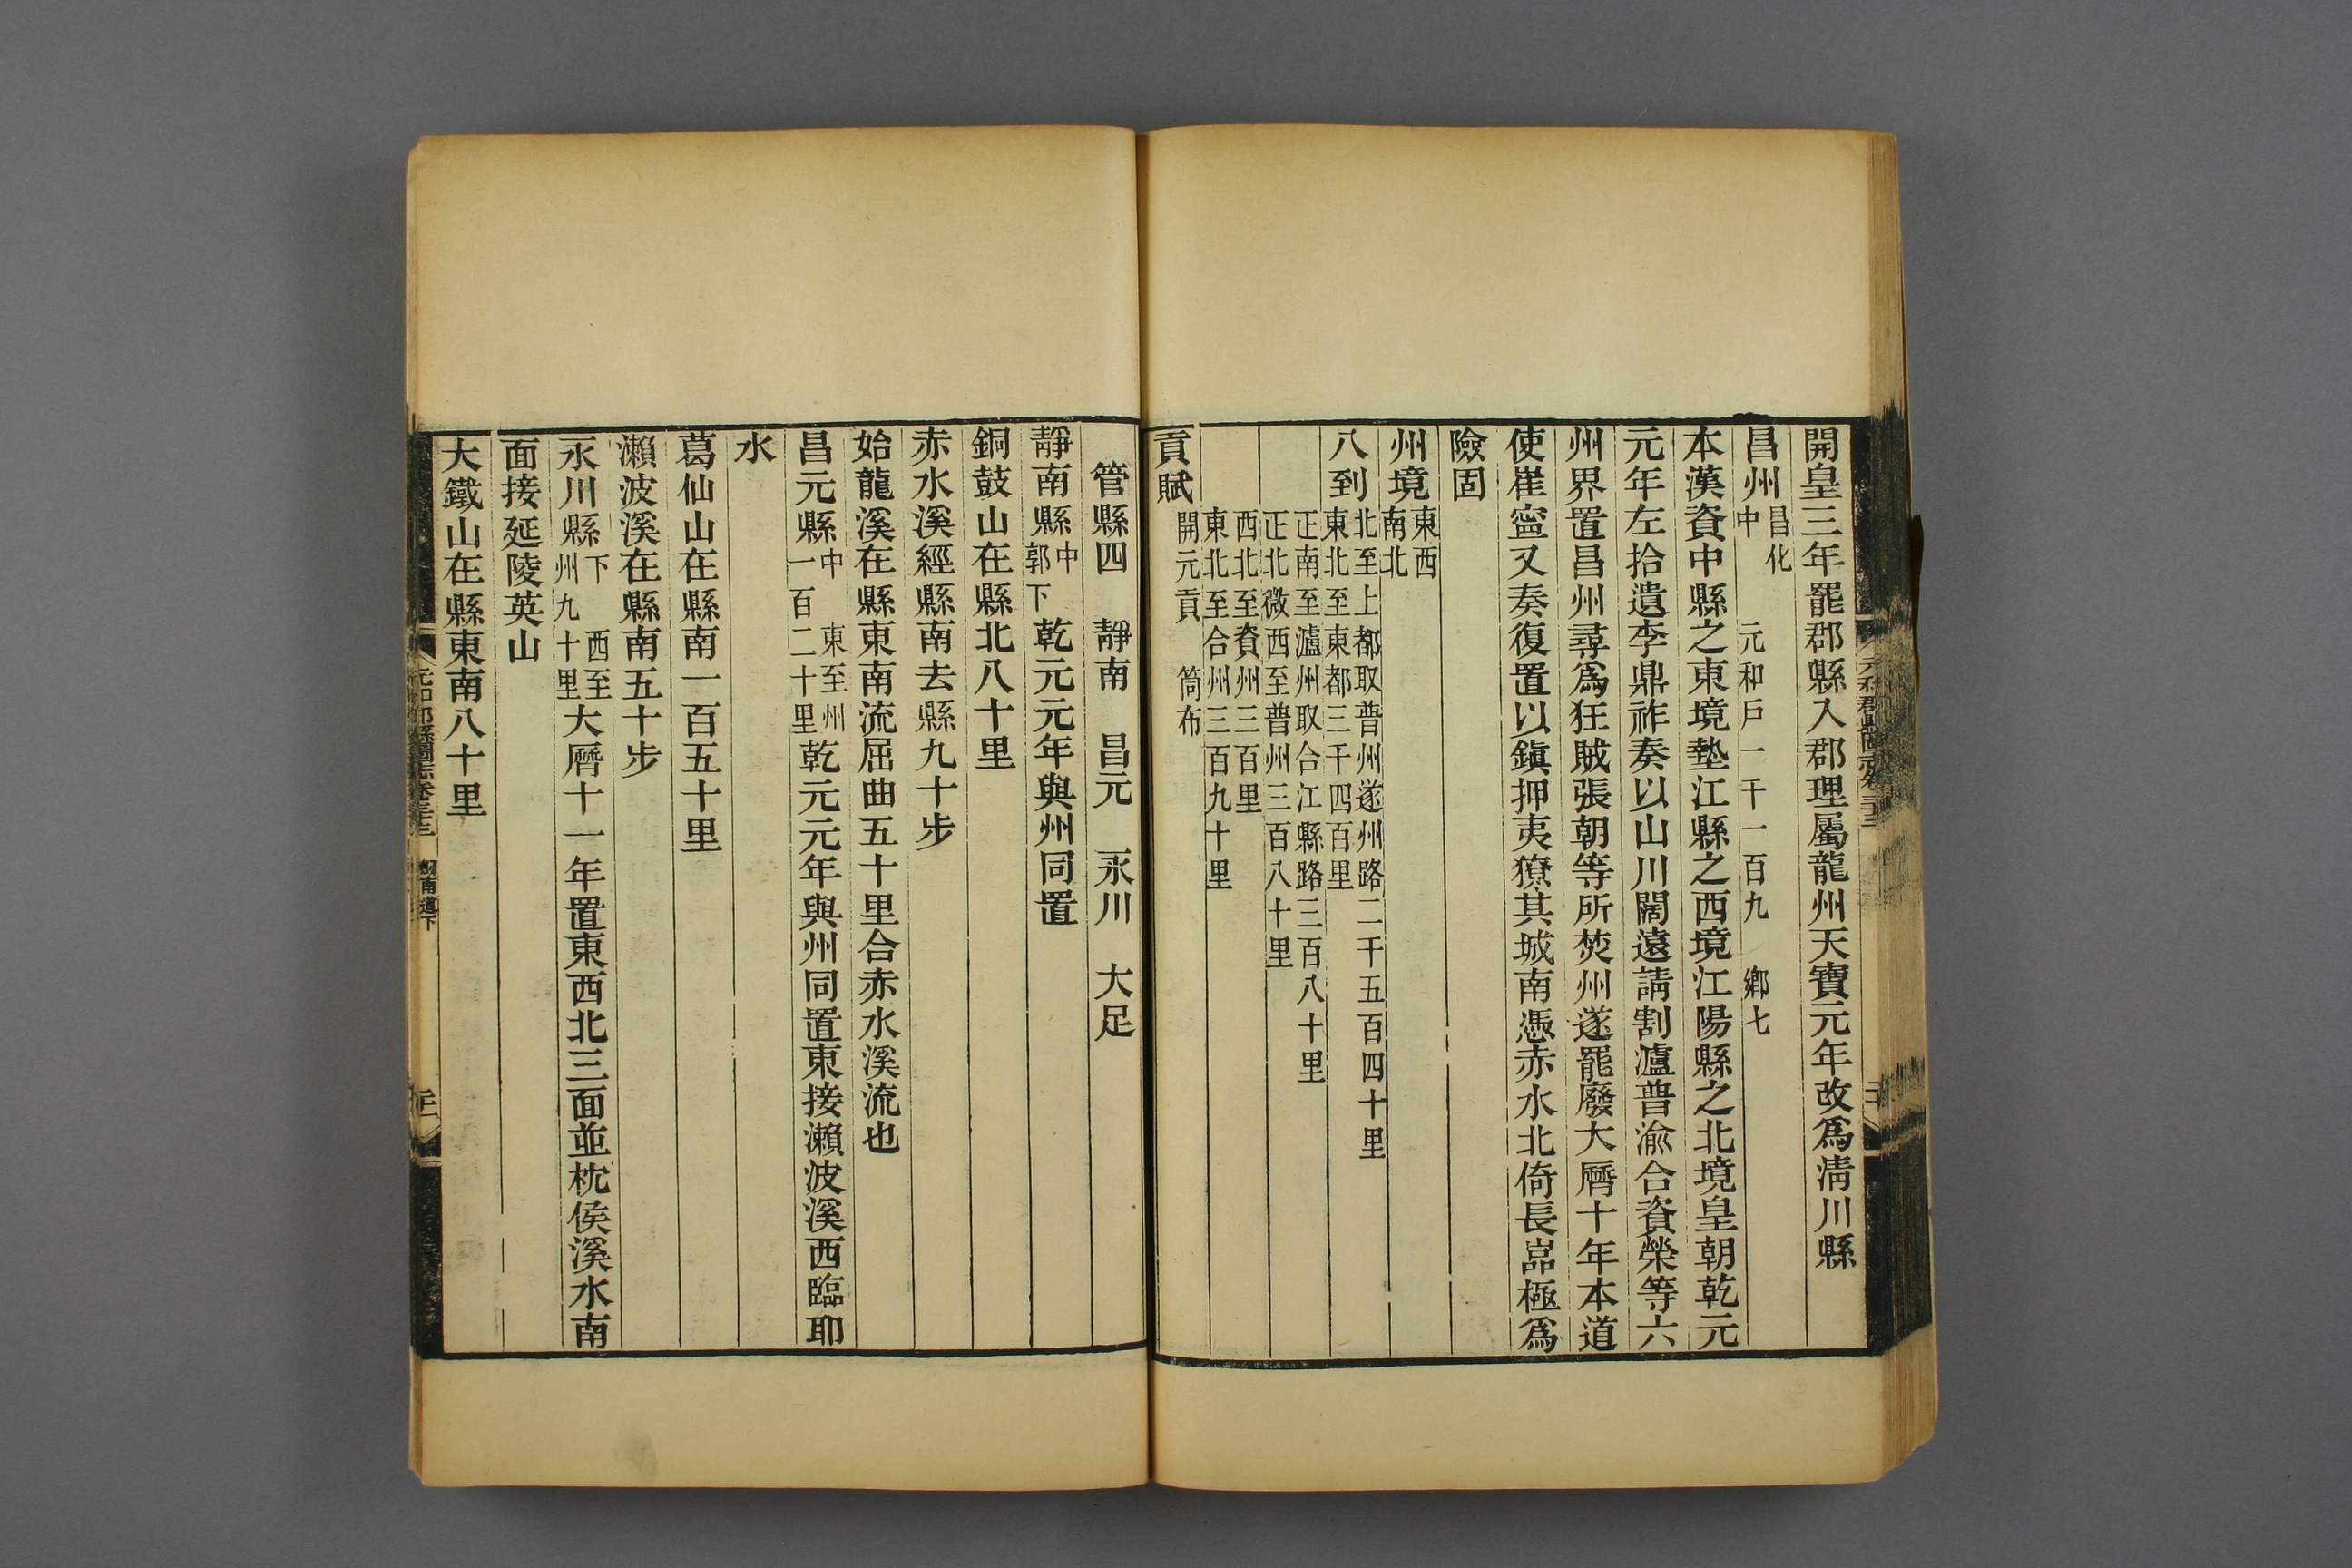 開皇三年罷郡縣入郡理屬龍州天寶元年改爲淸川縣
昌州昌化中 元和戶一千一百九 鄉七
本漢資中縣之東境墊江縣之西境江陽縣之北境皇朝乾元
元年左拾遺李鼎祚奏以山川闊遠請割瀘普渝合資榮等六
州界置昌州尋爲狂賊張朝等所焚州遂罷廢大曆十年本道
使崔寧又奏復置以鎭押夷獠其城南憑赤水北倚長巖極爲
險固
州境東西南北
八到北至上都取普州遂州路二千五百四十里東北至東都三千四百里
正南至瀘州取合江縣路三百八十里正北微西至普州三百八十里
西北至資州三百里東北至合州三百九十里
貢賦開元貢 筒布
管縣四 靜南 昌元 永川 大足
靜南縣中郭下乾元元年與州同置
銅鼓山在縣北八十里
赤水溪經縣南去縣九十步
始龍溪在縣東南流屈曲五十里合赤水溪流也
昌元縣中 東至州一百二十里乾元元年與州同置東接瀨波溪西臨耶
水
葛仙山在縣南一百五十里
瀨波溪在縣南五十步
永川縣下 西至州九十里大曆十一年置東西北三面並枕侯溪水南
面接延陵英山
大鐵山在縣東南八十里
元和郡縣圖志卷三十三 劍南道下